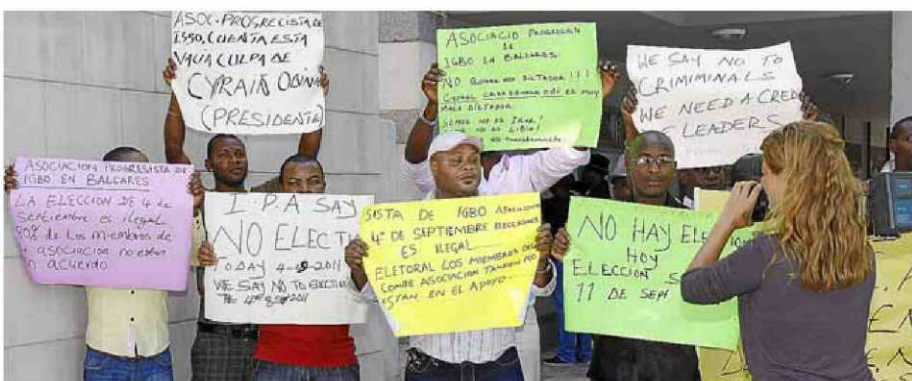 ASOC. PROGRECISTA DE
IGBO, CUENTA ESTA
VACIA CULPA DE
CYRAIN
(PRESIDENTE)
ASOCIACIO PROGRESIEN
DE
IGBO EN BALEARES
NO QUEREMOS DICTADOR !!!
ES MUY
MALO DICTADOR
SOMOS NO ES IRAK!
NO ES LIBIA!
WE SAY NO TO
CRIMIMINALS
WE NEED A CRED
E LEADERS
ASOCIACION PROGRESISTA DE
IGBO EN BALEARES
LA ELECCION DE 4 de
Septiembre es ilegal
80% de Los miembros de
asociacion no estan
n acuerdo
I.P.A SAY
NO ELECTI
TODAY 4-9-2011
WE SAY NO TO ELECTION
THE 4th 2011
SISTA DE IGBO
4º DE SEPTIEMBRE
ES ILEGAL
ELETORAL LOS MIEMBROS DEL
COMITE ASOCIACION TAMBIEN NO
ESTAN EN EL APOYO
NO HAY ELE
HOY
ELECCION
11 DE SEP